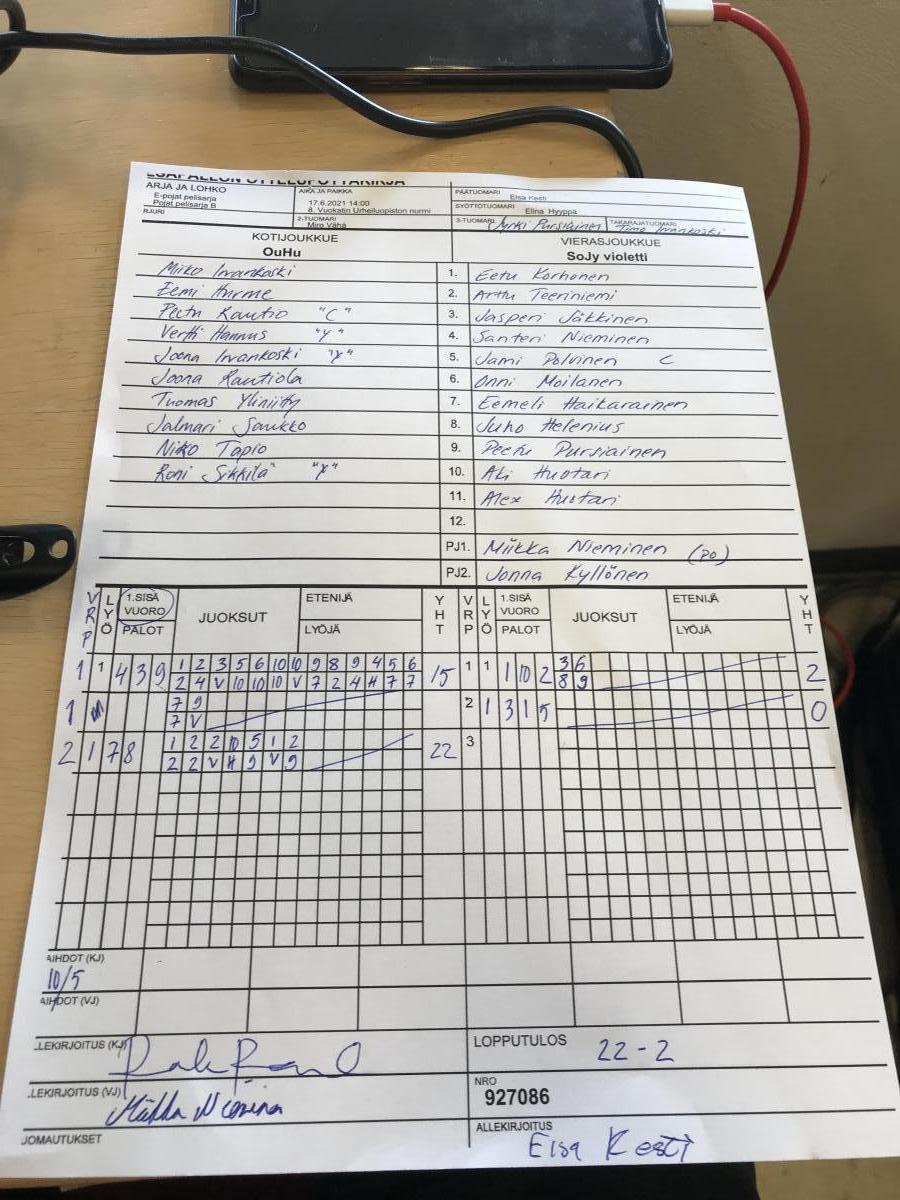 ARJA JA LOHKO
E-pojat pelisarja
Pojat pelisarja B
RJURI
AIKA JA PAIKKA
17.6.2021 14:00
8. Vuokatin Urheiluopiston nurmi
2-TUOMARI
Miro Vähä
PÄÄTUOMARI
Elsa Kesti
SYÖTTÖTUOMARI
Elina Hyyppa
3-TUOMARI Jyrki Pursiainen TAKARAJATUOMARI Timo Irvankoski
KOTIJOUKKUE
OuHu
VIERASJOUKKUE
SoJy violetti
Miiko Irvankoski 1. Eetu Korhonen
Eemi Hurme 2. Arttu Teeriniemi
Peetu Rautio "C" 3. Jasperi Jäkkinen
Vertti Hannus "Y" 4. Santeri Nieminen
Joona Irvankoski "Y" 5. Jami Polvinen C
Joona Rautiola 6. Onni Moilanen
Tuomas Yliniitty 7. Eemeli Haikarainen
Jalmari Saukko 8. Juho Helenius
Niko Tapio 9. Peetu Pursiainen
Roni Sikkilä "Y" 10. Aki Huotari
11. Alex Huotari
12.
PJ1. Miikka Nieminen (PO)
PJ2. Jonna Kyllönen
VRP LYÖ 1.SISÄ VUORO PALOT JUOKSUT ETENIJÄ LYÖJÄ YHT VRP LYÖ 1.SISÄ VUORO PALOT JUOKSUT ETENIJÄ LYÖJÄ YHT
1 1 4 3 9 1 2 3 5 6 10 10 9 8 9 4 5 6 15 1 1 1 10 2 3 6 2
2 4 V 10 10 10 V 7 2 4 H 7 7 8 9
1 7 9 2 1 3 1 5 0
7 V
2 1 7 8 1 2 2 10 5 1 2 22 3
2 2 V H 9 V 9
AIHDOT (KJ)
10/5
AIHDOT (VJ)
LEKIRJOITUS (KJ)
LOPPUTULOS 22-2
LEKIRJOITUS (VJ) Miikka Nieminen
NRO
927086
UOMAUTUKSET
ALLEKIRJOITUS
Elsa Kesti